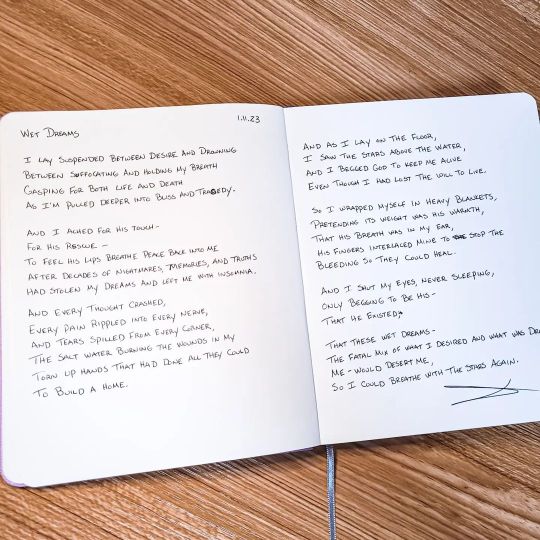 1.11.23
WET DREAMS
I LAY SUSPENDED BETWEEN DESIRE AND DROWNING
BETWEEN SUFFOCATING AND HOLDING MY BREATH
GASPING FOR BOTH LIFE AND DEATH
AS I'M PULLED DEEPER INTO BLISS AND TRAGEDY.
AND I ACHED FOR HIS TOUCH-
FOR HIS RESCUE -
TO FEEL HIS LIPS BREATHE PEACE BACK INTO ME
AFTER DECADES OF NIGHTMARES, MEMORIES, AND TRUTHS
HAD STOLEN MY DREAMS AND LEFT ME WITH INSOMNIA.
AND EVERY THOUGHT CRASHED,
EVERY PAIN RIPPLED INTO EVERY NERVE,
AND TEARS SPILLED FROM EVERY CORNER,
THE SALT WATER BURNING THE WOUNDS IN MY
TORN UP HANDS THAT HAD DONE ALL THEY COULD
TO BUILD A HOME.
AND AS I LAY ON THE FLOOR,
I SAW THE STARS ABOVE THE WATER,
AND I BEGGED GOD TO KEEP ME ALIVE
EVEN THOUGH I HAD LOST THE WILL TO LIVE.
SO I WRAPPED MYSELF IN HEAVY BLANKETS,
PRETENDING ITS WEIGHT WAS HIS WARMTH,
THAT HIS BREATH WAS IN MY EAR,
HIS FINGERS INTERLACED MINE TO STOP THE
BLEEDING SO THEY COULD HEAL.
AND I SHUT MY EYES, NEVER SLEEPING,
ONLY BEGGING TO BE HIS-
THAT HE EXISTED;
THAT THESE WET DREAMS-
THE FATAL MIX OF WHAT I DESIRED AND WHAT WAS
ME - WOULD DESERT ME,
SO I COULD BREATHE WITH THE STARS AGAIN.